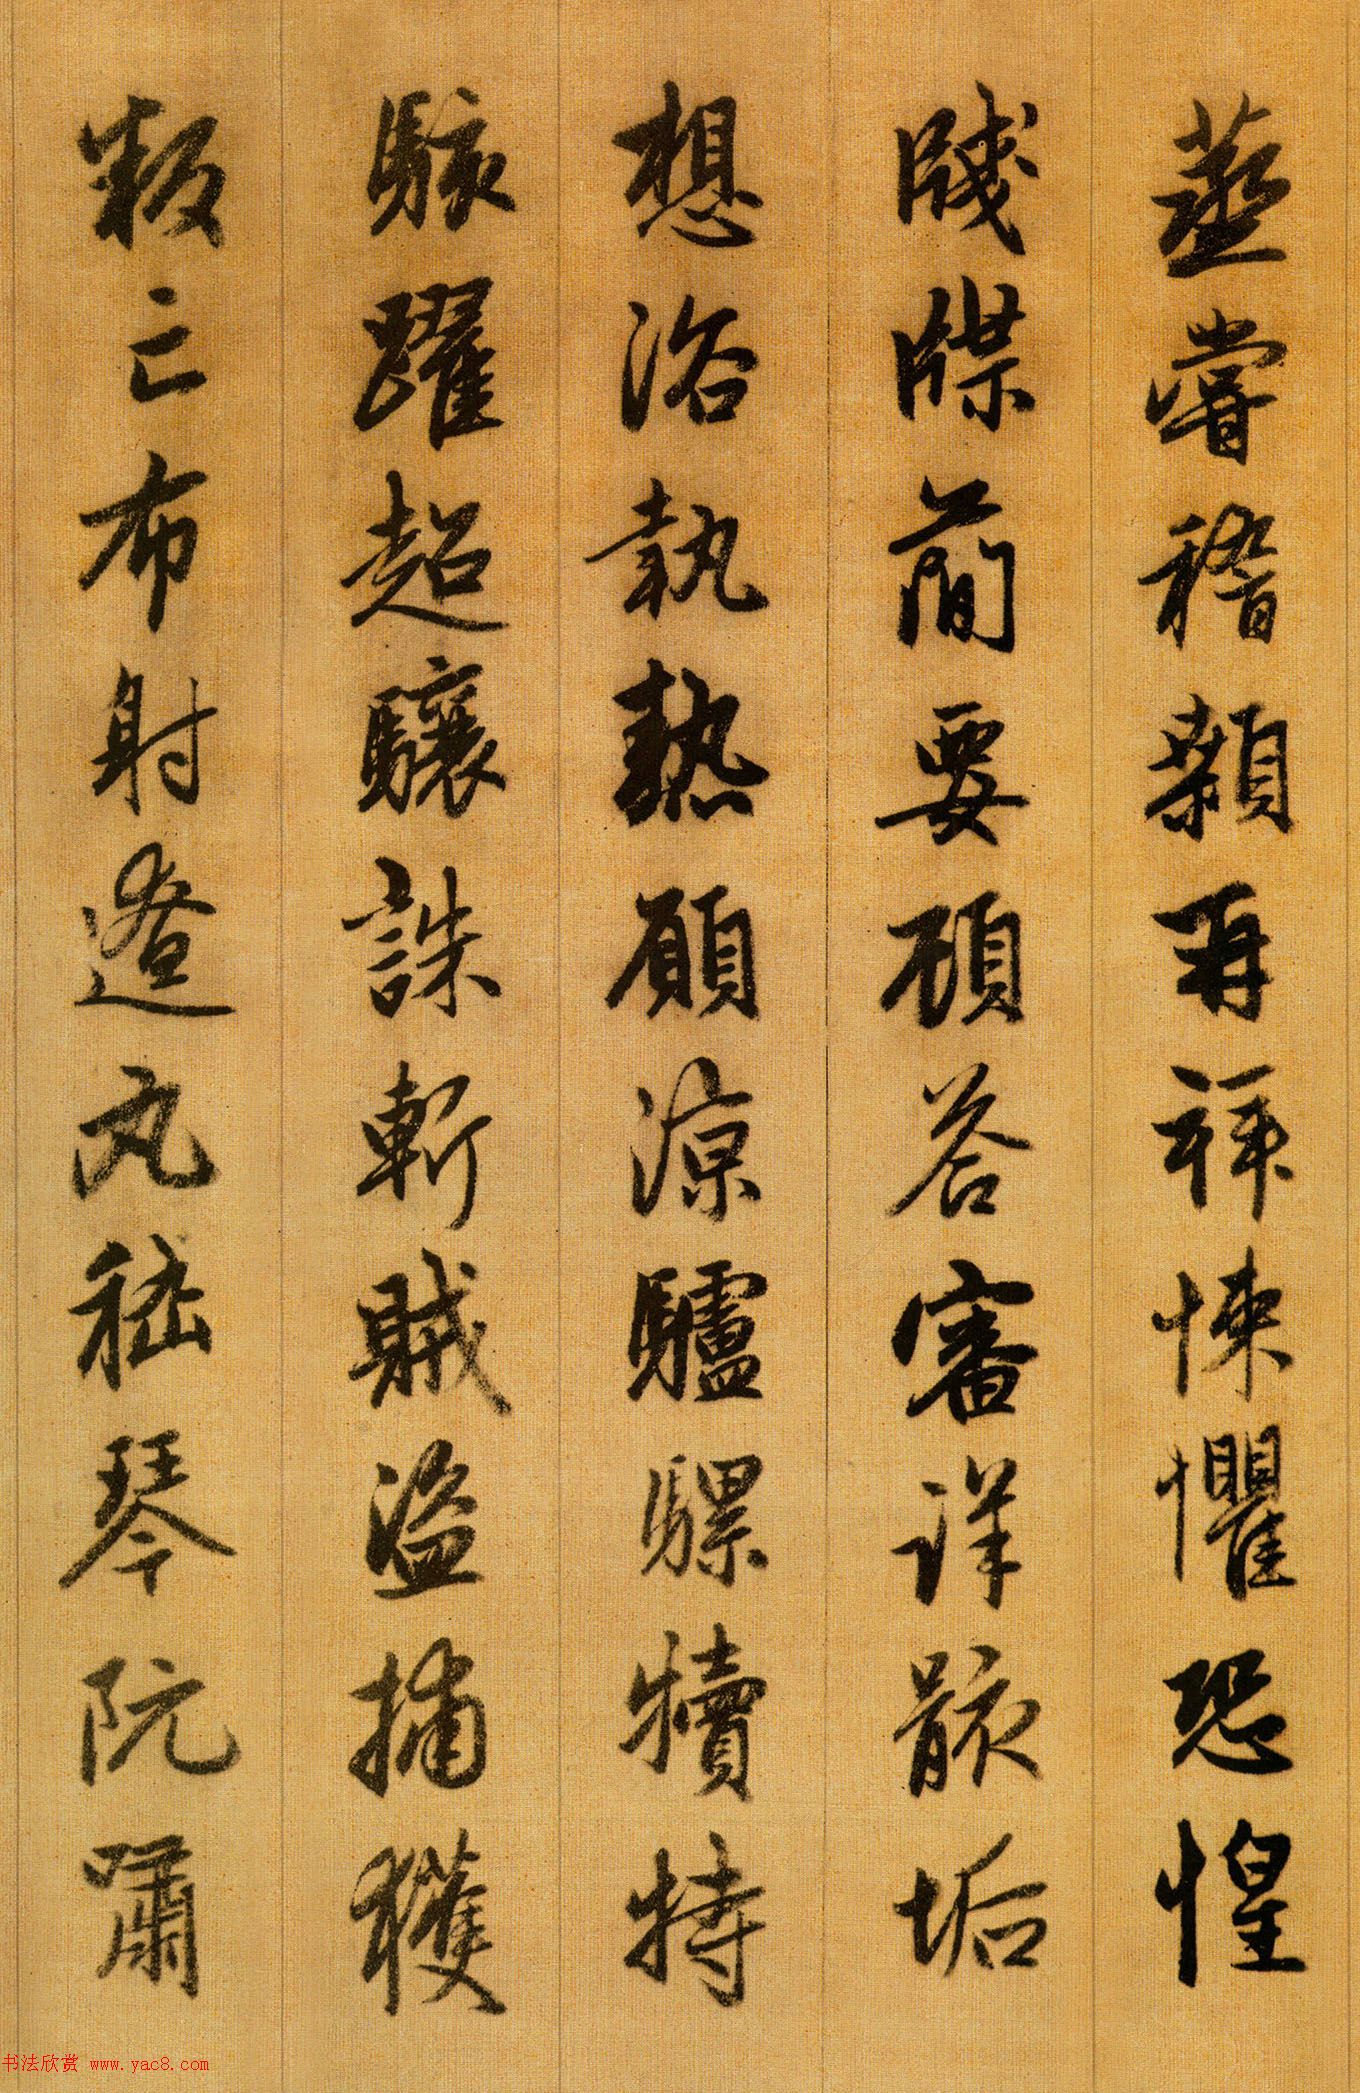 蒸嘗稽顙再拜悚懼恐惶
牋牒簡要顧答審詳骸垢
想浴執熱願涼驢騾犢特
駭躍超驤誅斬賊盜捕獲
叛亡布射遼丸嵇琴阮嘯
书法欣赏 www.yac8.com